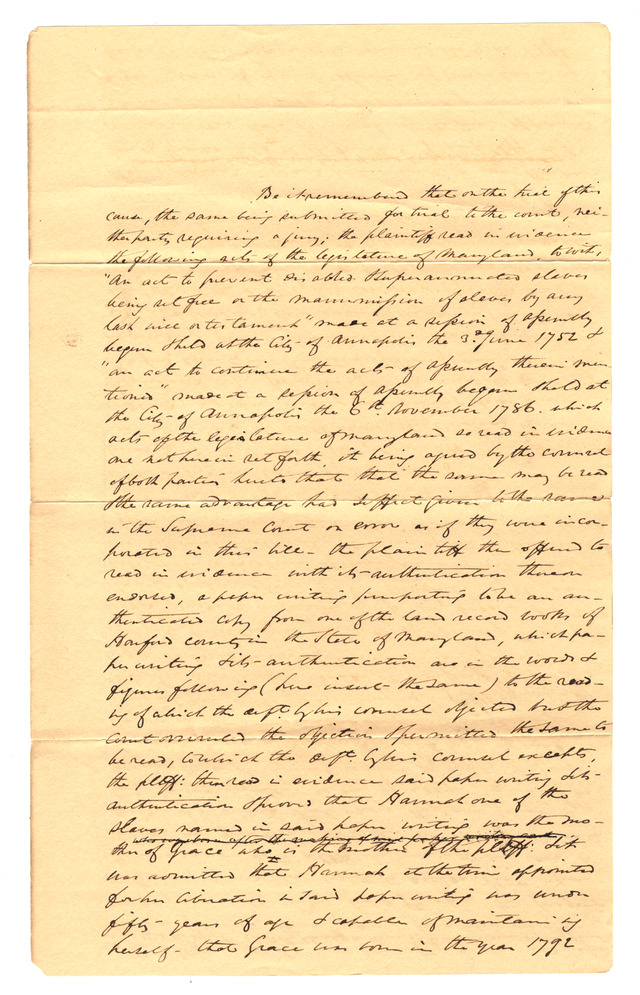 Be it remembered that on the trial of this
cause, the same being submitted for trial to the court, nei-
ther party requiring a jury; the plaintiff read in evidence
the following acts of the legislature of Maryland, to wit,
"An act to prevent disabled & superannuated slaves
being set free or the manumission of slaves by any
last will or testament" made at a session of assembly
begun & held at the City of Annapolis the 3rd June 1752 &
"an act to continue the acts of assembly therein men-
tioned" made at a session of assembly begun & held at
the City of Annapolis the 6th November 1786. which
acts of the legislature of maryland so read in evidence
are not herein set forth, it being agreed by the counsel
of both parties hereto that the same may be read
& the same advantage had & effect given to the same
in the Supreme Court on error as if they were incor-
porated in this bill - the plaintiff then offered to
read in evidence with its authentication thereon
endorsed, a paper writing purporting to be an au-
thenticated copy from one of the land record books of
Harford county in the State of Maryland, which pa-
per writing & its authentication are in the words &
figures following (here insert the same) to the read-
ing of which the deft. by his counsel objected but the
court overruled the objection & permitted the same to
be read, to which the deft. by his counsel excepts,
the pltff: then read in evidence said paper writing & its
authentication & proved that Hannah one of the
slaves named in said paper writing was the mo-
who was born after the making of said paper writing and
ther of Grace who is the mother of the pltff: & it
was admitted that Hannah at the time appointed
for her liberation in said paper writing was under
fifty years of age & capable of maintaining
herself - that Grace was born in the year 1792